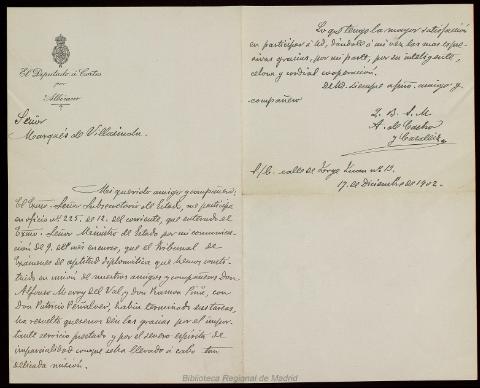 El Diputado á Cortes
por
Albocácer
Señor
Marqués de Villasinda.
Mi querido amigo y compañero:
El Excmo. Señor Subsecretario de Estado, me participa
en oficio nº 225 de 12 del corriente, que enterado el
Excmo. Señor Ministro de Estado por mi comunica-
ción de 9 del mes en curso, que el Tribunal de
Exámenes de aptitud diplomática que hemos consti-
tuido en unión de nuestros amigos y compañeros Don
Alfonso Merry del Val, y Don Ramon Piña, con
Don Patricio Peñalver, había terminado sus tareas,
ha resuelto que se nos dén las gracias por el impor-
tante servicio prestado y por el severo espíritu de
imparcialidad con que se ha llevado á cabo tan
delicada misión.
Lo que tengo la mayor satisfacción
en participar á Ud, dándole á mi vez las mas expre-
sivas gracias, por mi parte, por su inteligente,
celosa y cordial cooperación.
De Ud. siempre afmo. amigo y
compañero
Q. B. S. M.
A. de Castro
y Casaleiz
S/C. calle de Jorge Juan nº 13.
17 de Diciembre de 1902.
Biblioteca Regional de Madrid